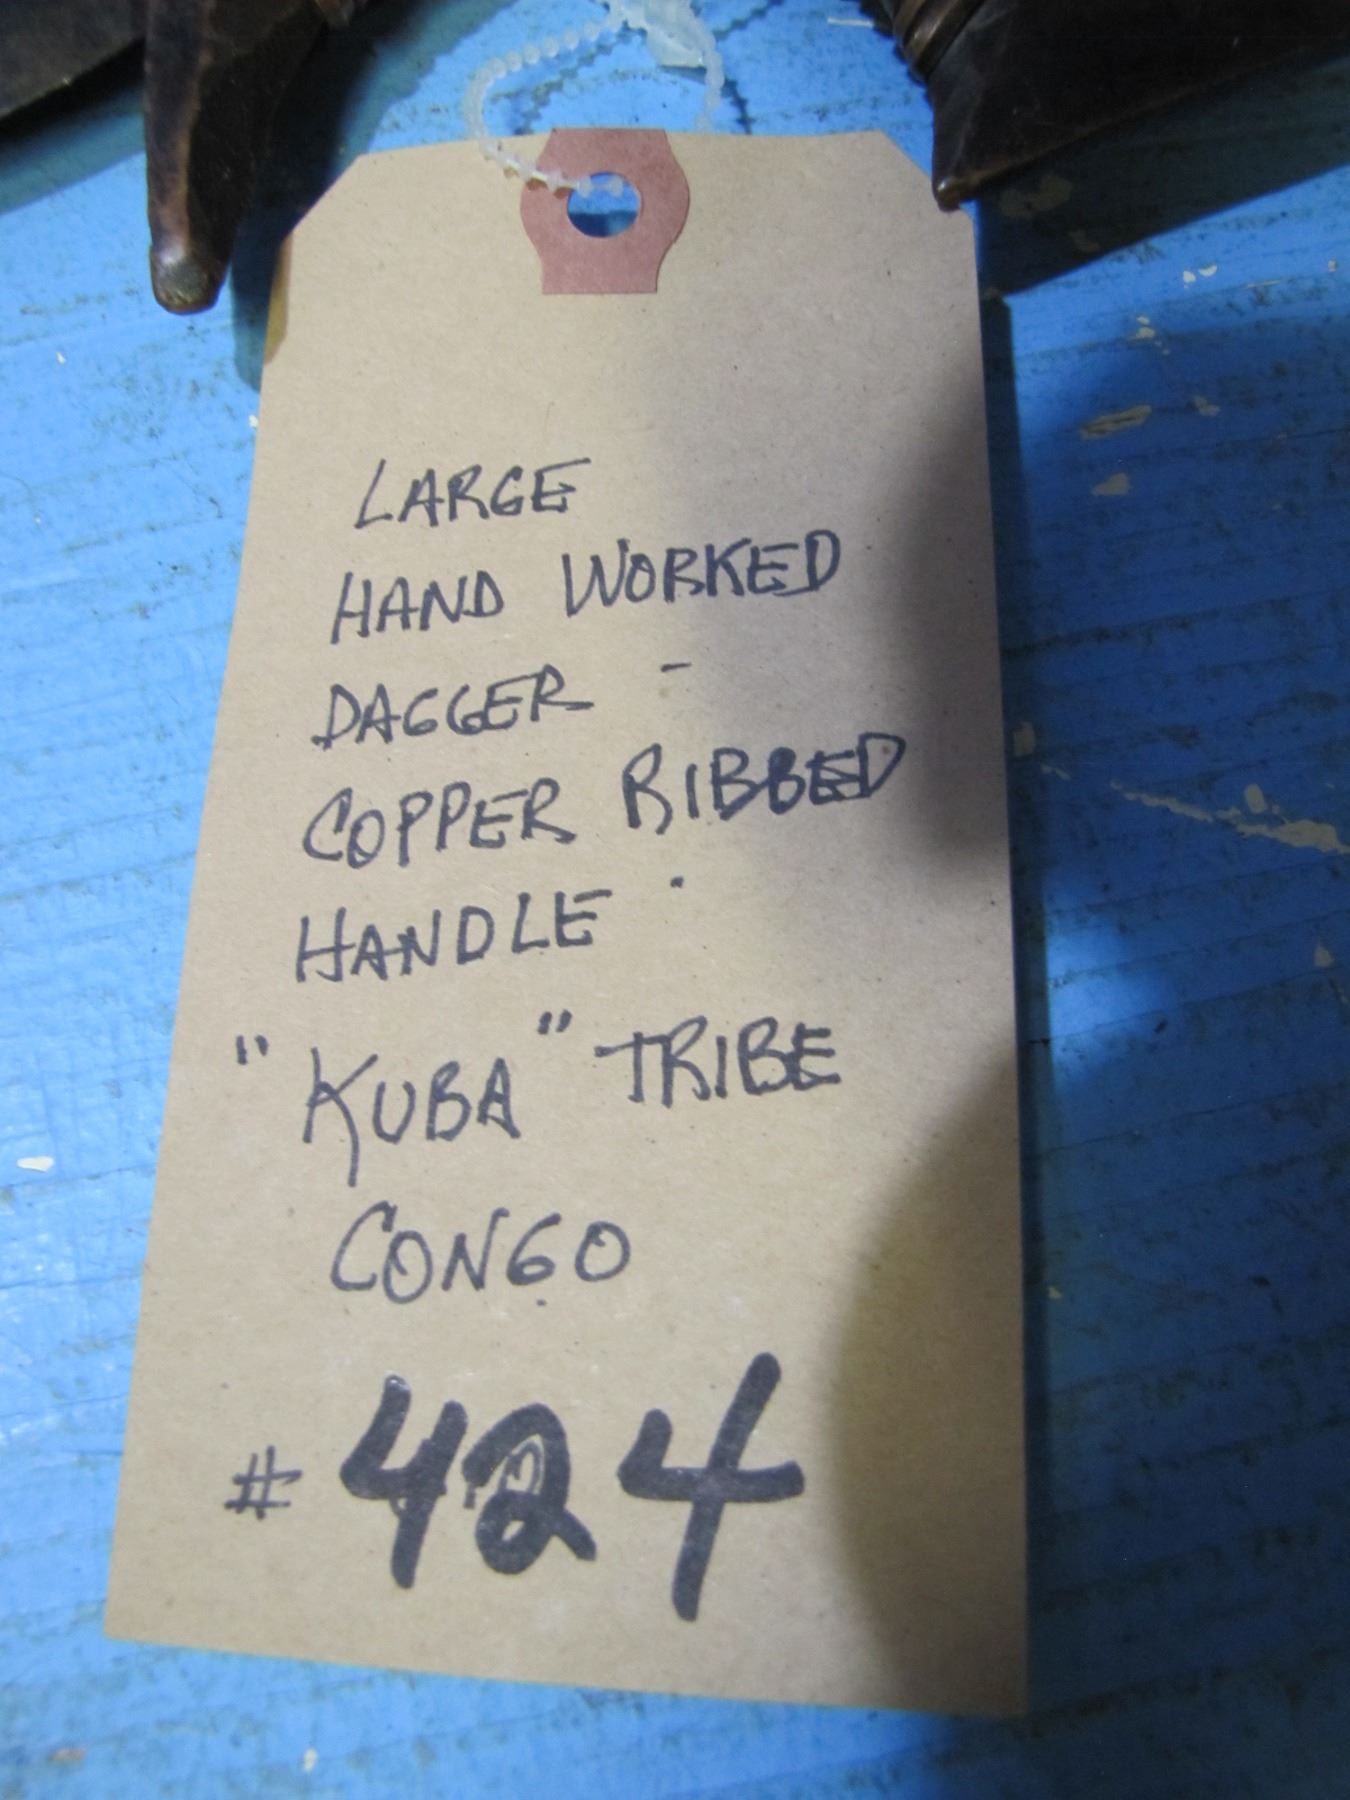 LARGE
HAND WORKED
DAGGER -
COPPER RIBBED
HANDLE -
"KUBA" TRIBE
CONGO
# 424